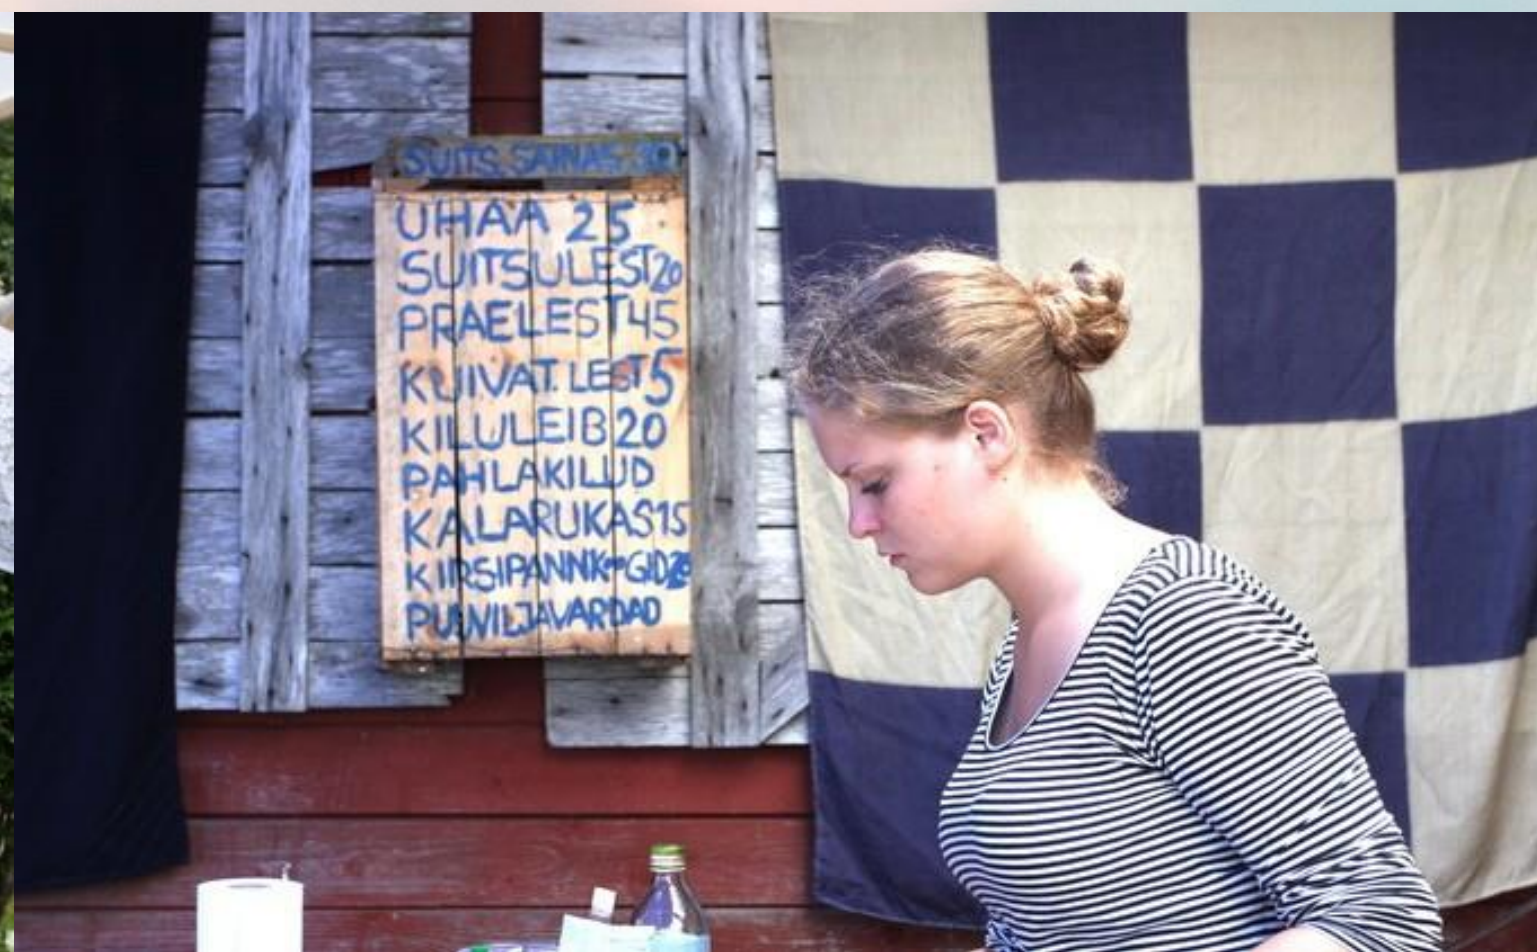 SUITS. SAINAS 30
UHAA 25
SUITSULEST 20
PRAELEST 45
KUIVAT. LEST 5
KILULEIB 20
PAHLAKILUD
KALARUKAS 15
KIRSIPANNKOOGID 20
PUUVILJAVARDAD